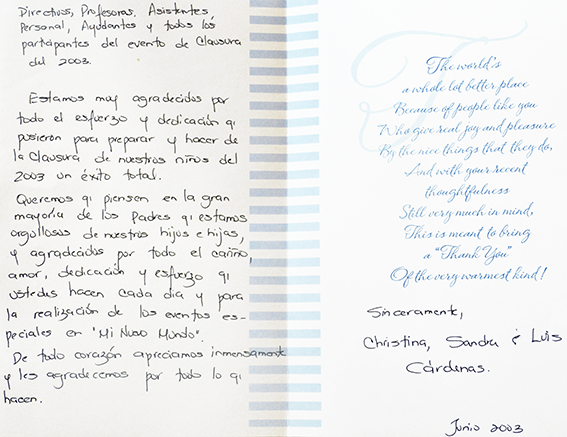 Directivos, Profesoras, Asistentes,
Personal, Ayudantes y todos los
participantes del evento de Clausura
del 2003.
Estamos muy agradecidos por
todo el esfuerzo y dedicación qi
pusieron para preparar y hacer de
la Clausura de nuestros niños del
2003 un éxito total.
Queremos qi piensen en la gran
mayoría de los Padres qi estamos
orgullosos de nuestros hijos e hijas,
y agradecidos por todo el cariño,
amor, dedicación y esfuerzo qi
ustedes hacen cada día y para
la realización de los eventos es-
peciales en "Mi Nuevo Mundo".
De todo corazón apreciamos inmensamente
y les agradecemos por todo lo qi
hacen.
The world's
a whole lot better place
Because of people like you
Who give real joy and pleasure
By the nice things that they do,
And with your recent
thoughtfulness
Still very much in mind,
This is meant to bring
a "Thank You"
Of the very warmest kind!
Sinceramente,
Christina, Sandra é Luis
Cárdenas.
Junio 2003